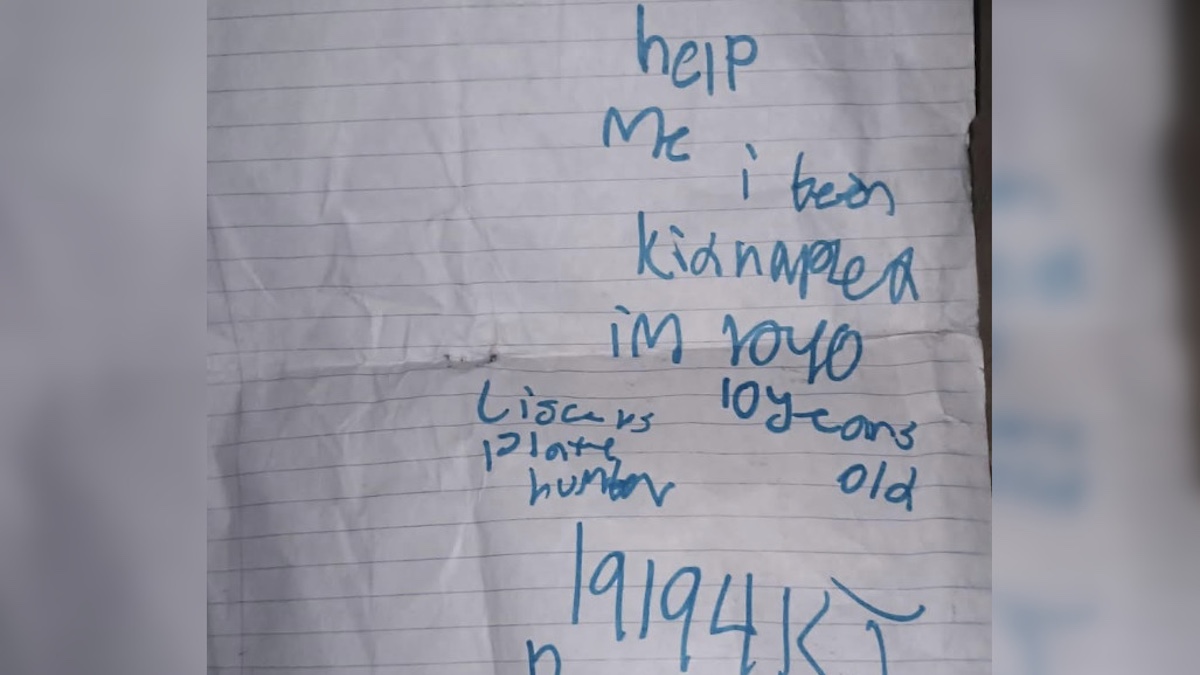 help
Me
i been
kidnapped
iM 10yo
10 years
old
Liscens
plate
number
19194KJ
n